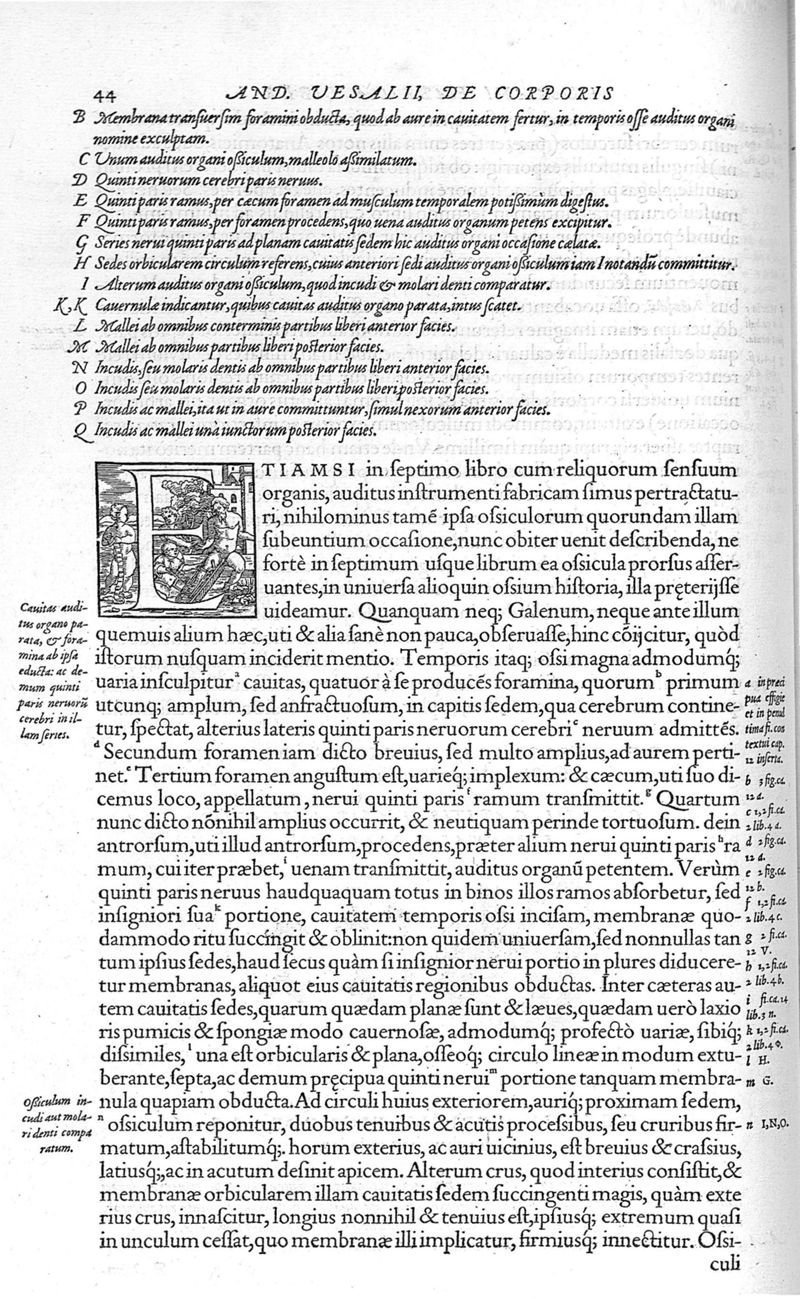 44 AND. VESALII, DE CORPORIS
B Membrana transuersim foramini obducta, quod ab aure in cauitatem fertur, in temporis osse auditus organi
nomine exculptam.
C Vnum auditus organi ossiculum, malleolo assimilatum.
D Quinti neruorum cerebri paris neruus.
E Quinti paris ramus, per cæcum foramen ad musculum temporalem potissimùm digestus.
F Quinti paris ramus, per foramen procedens, quo uena auditus organum petens excipitur.
G Series nerui quinti paris ad planam cauitatis sedem hic auditus organi occasione cælatæ.
H Sedes orbicularem circulum referens, cuius anteriori sedi auditus organi ossiculum iam I notandũ committitur.
I Alterum auditus organi ossiculum, quod incudi & molari denti comparatur.
K, K Cauernulæ indicantur, quibus cauitas auditus organo parata, intus scatet.
L Mallei ab omnibus conterminis partibus liberi anterior facies.
M Mallei ab omnibus partibus liberi posterior facies.
N Incudis, seu molaris dentis ab omnibus partibus liberi anterior facies.
O Incudis seu molaris dentis ab omnibus partibus liberi posterior facies.
P Incudis ac mallei, ita ut in aure committuntur, simul nexorum anterior facies.
Q Incudis ac mallei unà iunctorum posterior facies.
ETIAMSI in septimo libro cum reliquorum sensuum
organis, auditus instrumenti fabricam simus pertractatu-
ri, nihilominus tamẽ ipsa ossiculorum quorundam illam
subeuntium occasione, nunc obiter uenit describenda, ne
fortè in septimum usque librum ea ossicula prorsus asser-
uantes, in uniuersa alioquin ossium historia, illa pręterijsse
uideamur. Quanquam neq; Galenum, neque ante illum
quemuis alium hæc, uti & alia sanè non pauca, obseruasse, hinc cõijcitur, quòd
istorum nusquam inciderit mentio. Temporis itaq; ossi magna admodumq;
uaria insculpitur a cauitas, quatuor à se producẽs foramina, quorum b primum
utcunq; amplum, sed anfractuosum, in capitis sedem, qua cerebrum contine-
tur, spectat, alterius lateris quinti paris neruorum cerebri c neruum admittẽs.
d Secundum foramen iam dicto breuius, sed multo amplius, ad aurem perti-
net. e Tertium foramen angustum est, uarieq; implexum: & cæcum, uti suo di-
cemus loco, appellatum, nerui quinti paris f ramum transmittit. g Quartum
nunc dicto nõnihil amplius occurrit, & neutiquam perinde tortuosum. dein
antrorsum, uti illud antrorsum, procedens, præter alium nerui quinti paris h ra
mum, cui iter præbet, i uenam transmittit, auditus organũ petentem. Verùm
quinti paris neruus haudquaquam totus in binos illos ramos absorbetur, sed
insigniori sua k portione, cauitatem temporis ossi incisam, membranæ quo-
dammodo ritu succingit & oblinit: non quidem uniuersam, sed nonnullas tan
tum ipsius sedes, haud secus quàm si insignior nerui portio in plures diducere-
tur membranas, aliquot eius cauitatis regionibus obductas. Inter cæteras au-
tem cauitatis sedes, quarum quædam planæ sunt & læues, quædam uerò laxio
ris pumicis & spongiæ modo cauernosæ, admodumq; profectò uariæ, sibiq;
dissimiles, l una est orbicularis & plana, osseoq; circulo lineæ in modum extu-
berante, septa, ac demum pręcipua quinti nerui m portione tanquam membra-
nula quapiam obducta. Ad circuli huius exteriorem, auriq; proximam sedem,
n ossiculum reponitur, duobus tenuibus & acutis processibus, seu cruribus fir-
matum, astabilitumq;. horum exterius, ac auri uicinius, est breuius & crassius,
latiusq;, ac in acutum desinit apicem. Alterum crus, quod interius consistit, &
membranæ orbicularem illam cauitatis sedem succingenti magis, quàm exte
rius crus, innascitur, longius nonnihil & tenuius est, ipsiusq; extremum quasi
in unculum cessat, quo membranæ illi implicatur, firmiusq; innectitur. Ossi-
culi
Cauitas audi-
tus organo pa-
rata, & fora-
mina ab ipsa
educta: ac de-
mum quinti
paris neruorũ
cerebri in il-
lam series.
Ossiculum in-
cudi aut mola-
ri denti compa
ratum.
a in præci
pua effigie
et in penul
tima fi. cos
textui cap.
12 inserta.
b 3 fig. ca.
12 d.
c 1, 2 fi. ca.
2 lib. 4 d.
d 2 fig. ca.
12 d.
e 2 fig. ca.
12 b.
f 1, 2 fi. ca.
2 lib. 4 c.
g 2 fi. ca.
12 V.
h 1, 2 fi. ca.
2 lib. 4 b.
i fi. ca. 14
lib. 3 n.
k 1, 2 fi. ca.
2 lib. 4
l H.
m G.
n I, N, O.